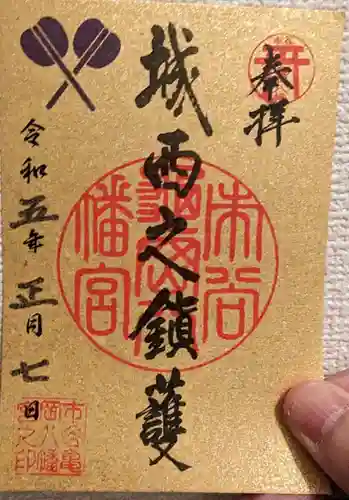 奉拝
城西之鎮護
令和五年正月七日
市谷
亀岡八
幡宮
市谷亀
岡八幡
宮之印